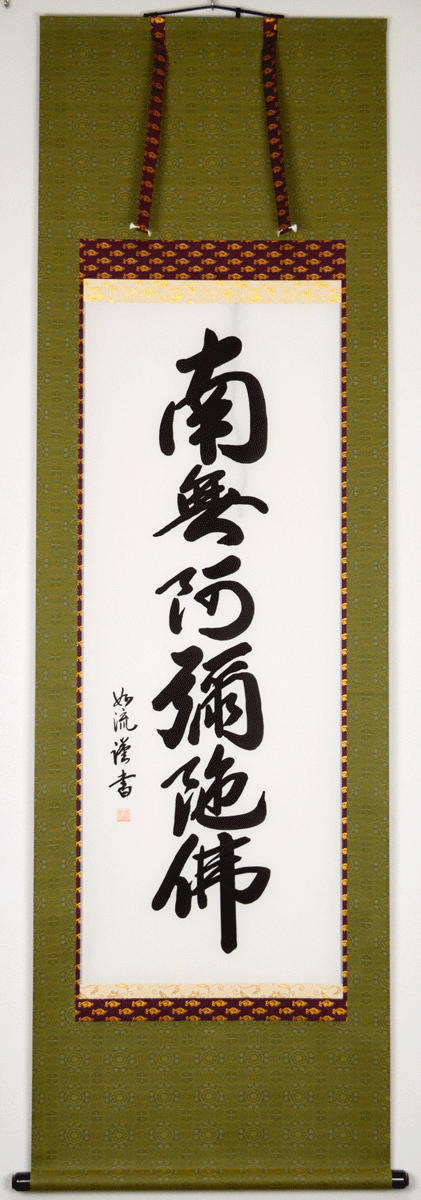 南無阿彌陀佛
如流謹書